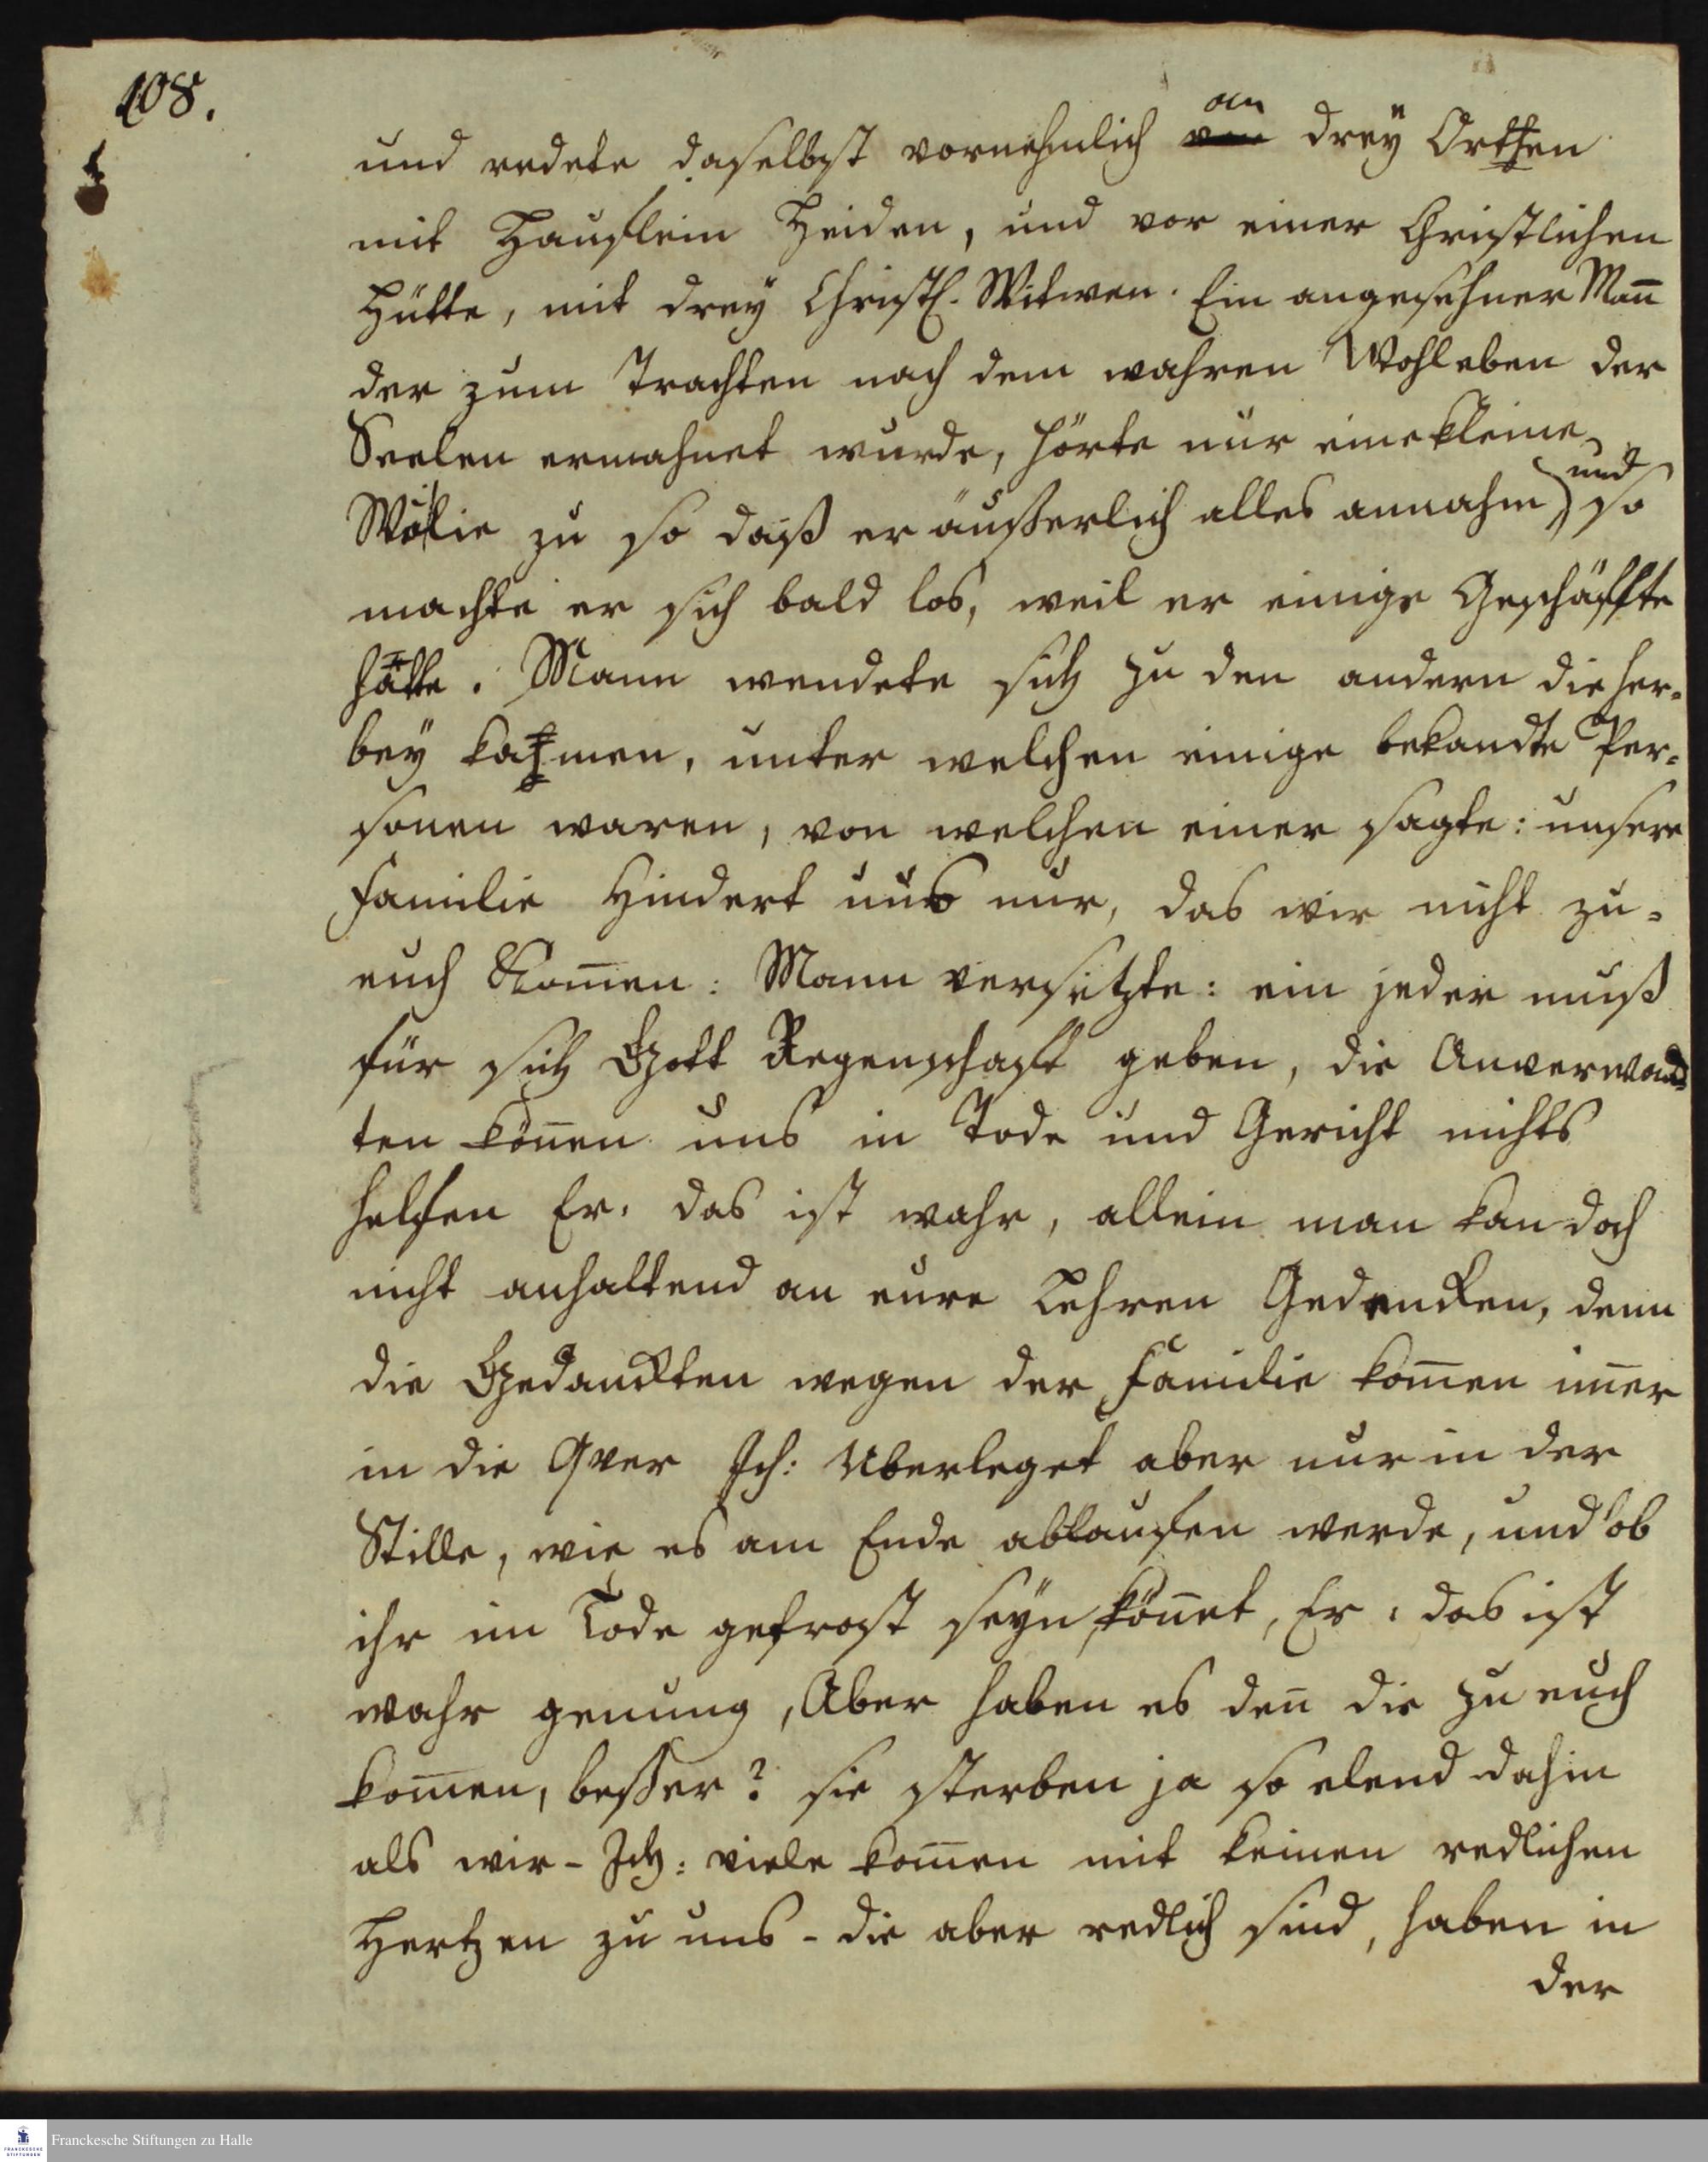 108.
und redete daselbst vornehmlich an drey Orthen
mit Hauflein Heiden, und vor einer Christlichen
Hütte, mit drey Christl. Witwen. Ein angesehner Man̄
der zum Trachten nach dem wahren Wohleben der
Seelen ermahnet wurde, hörte nur eine kleine
zu so daß er äußerlich alles annahm) und so
machte er sich bald los, weil er einige Geschäffte
hätte. Mann wendete sich zu den andern die her-
bey kahmen, unter welchen einige bekandte Per-
sonen waren, von welchen einer sagte: unsere
familie Hindert uns nur, das wir nicht zu-
euch Kom̄en: Mann versetzte: ein jeder muß
für sich Gott Regenschafft geben, die Anverwand-
ten kön̄en uns in Tode und Gericht nichts
helfen Er. das ist wahr, allein man kan doch
nicht anhaltend an eure Lehren Gedencken, denn
die Gedanckten wegen der familie kom̄en im̄er
in die Qver Ich: Uberleget aber nur in der
Stille, wie es am Ende ablaufen werde, und ob
ihr im Tode getrost seyn kön̄et, Er: das ist
wahr genung, Aber haben es den̄ die zu euch
kom̄en, besser? sie sterben ja so elend dahin
als wir - Ich: viele kom̄en mit keinen redlichen
Hertzen zu uns - die aber redlich sind, haben in
der
Franckesche Stiftungen zu Halle